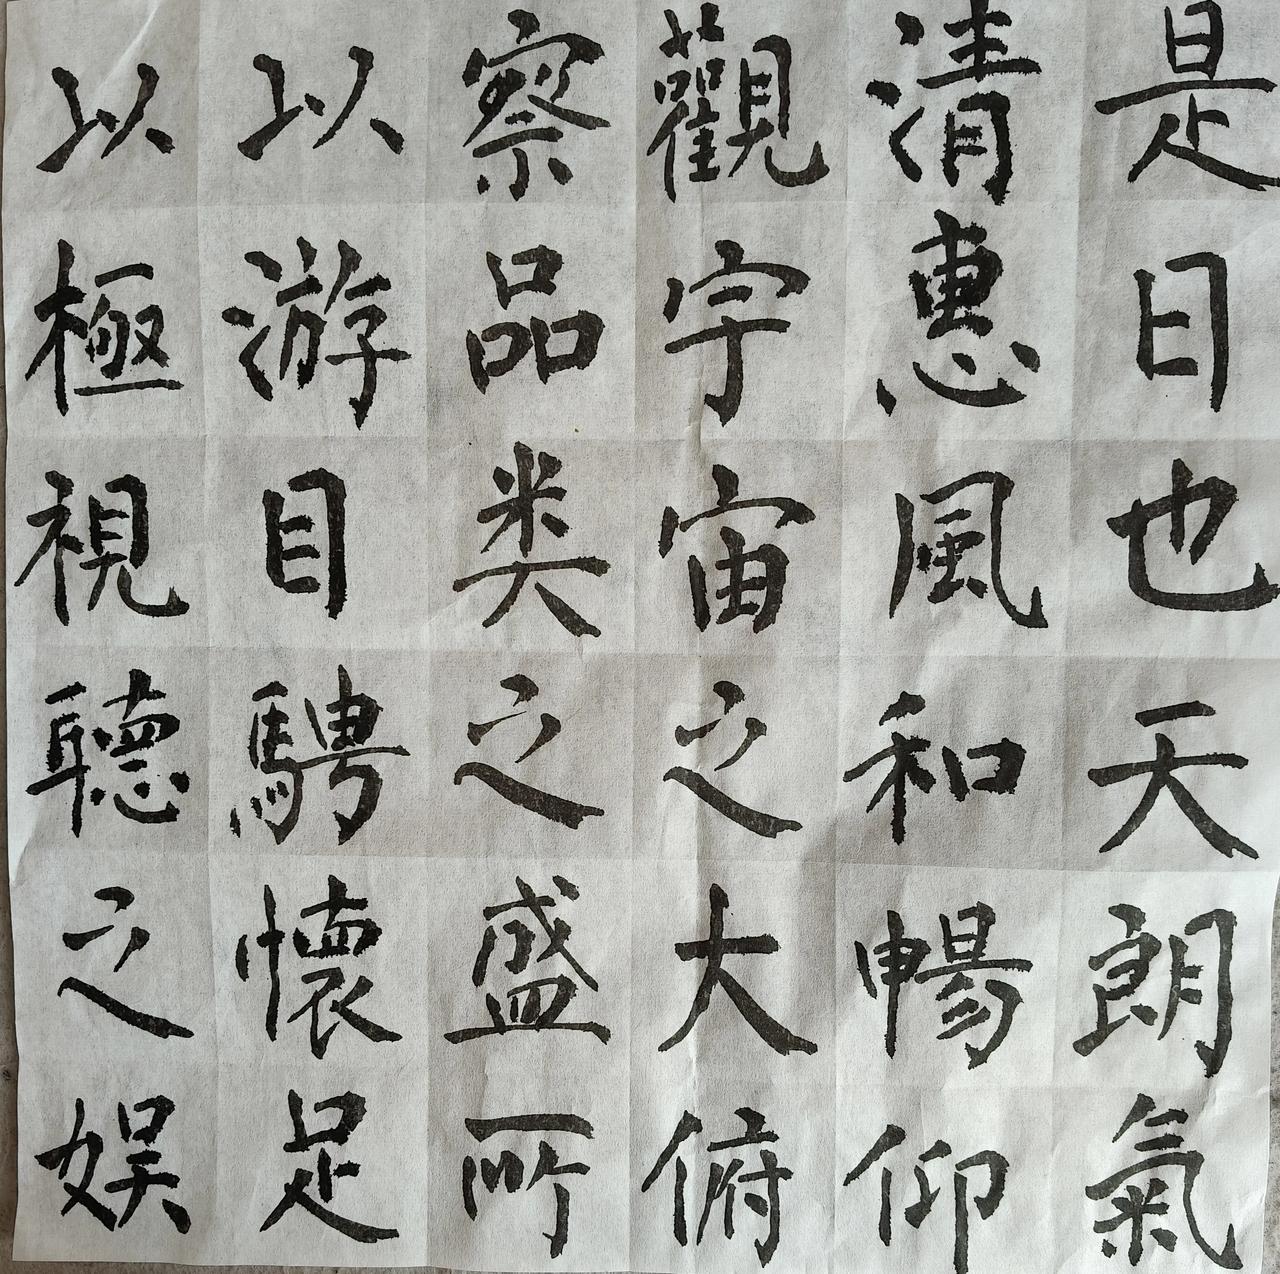 是日也天朗氣
清惠風和暢仰
觀宇宙之大俯
察品类之盛所
以游目騁懷足
以極視聽之娱